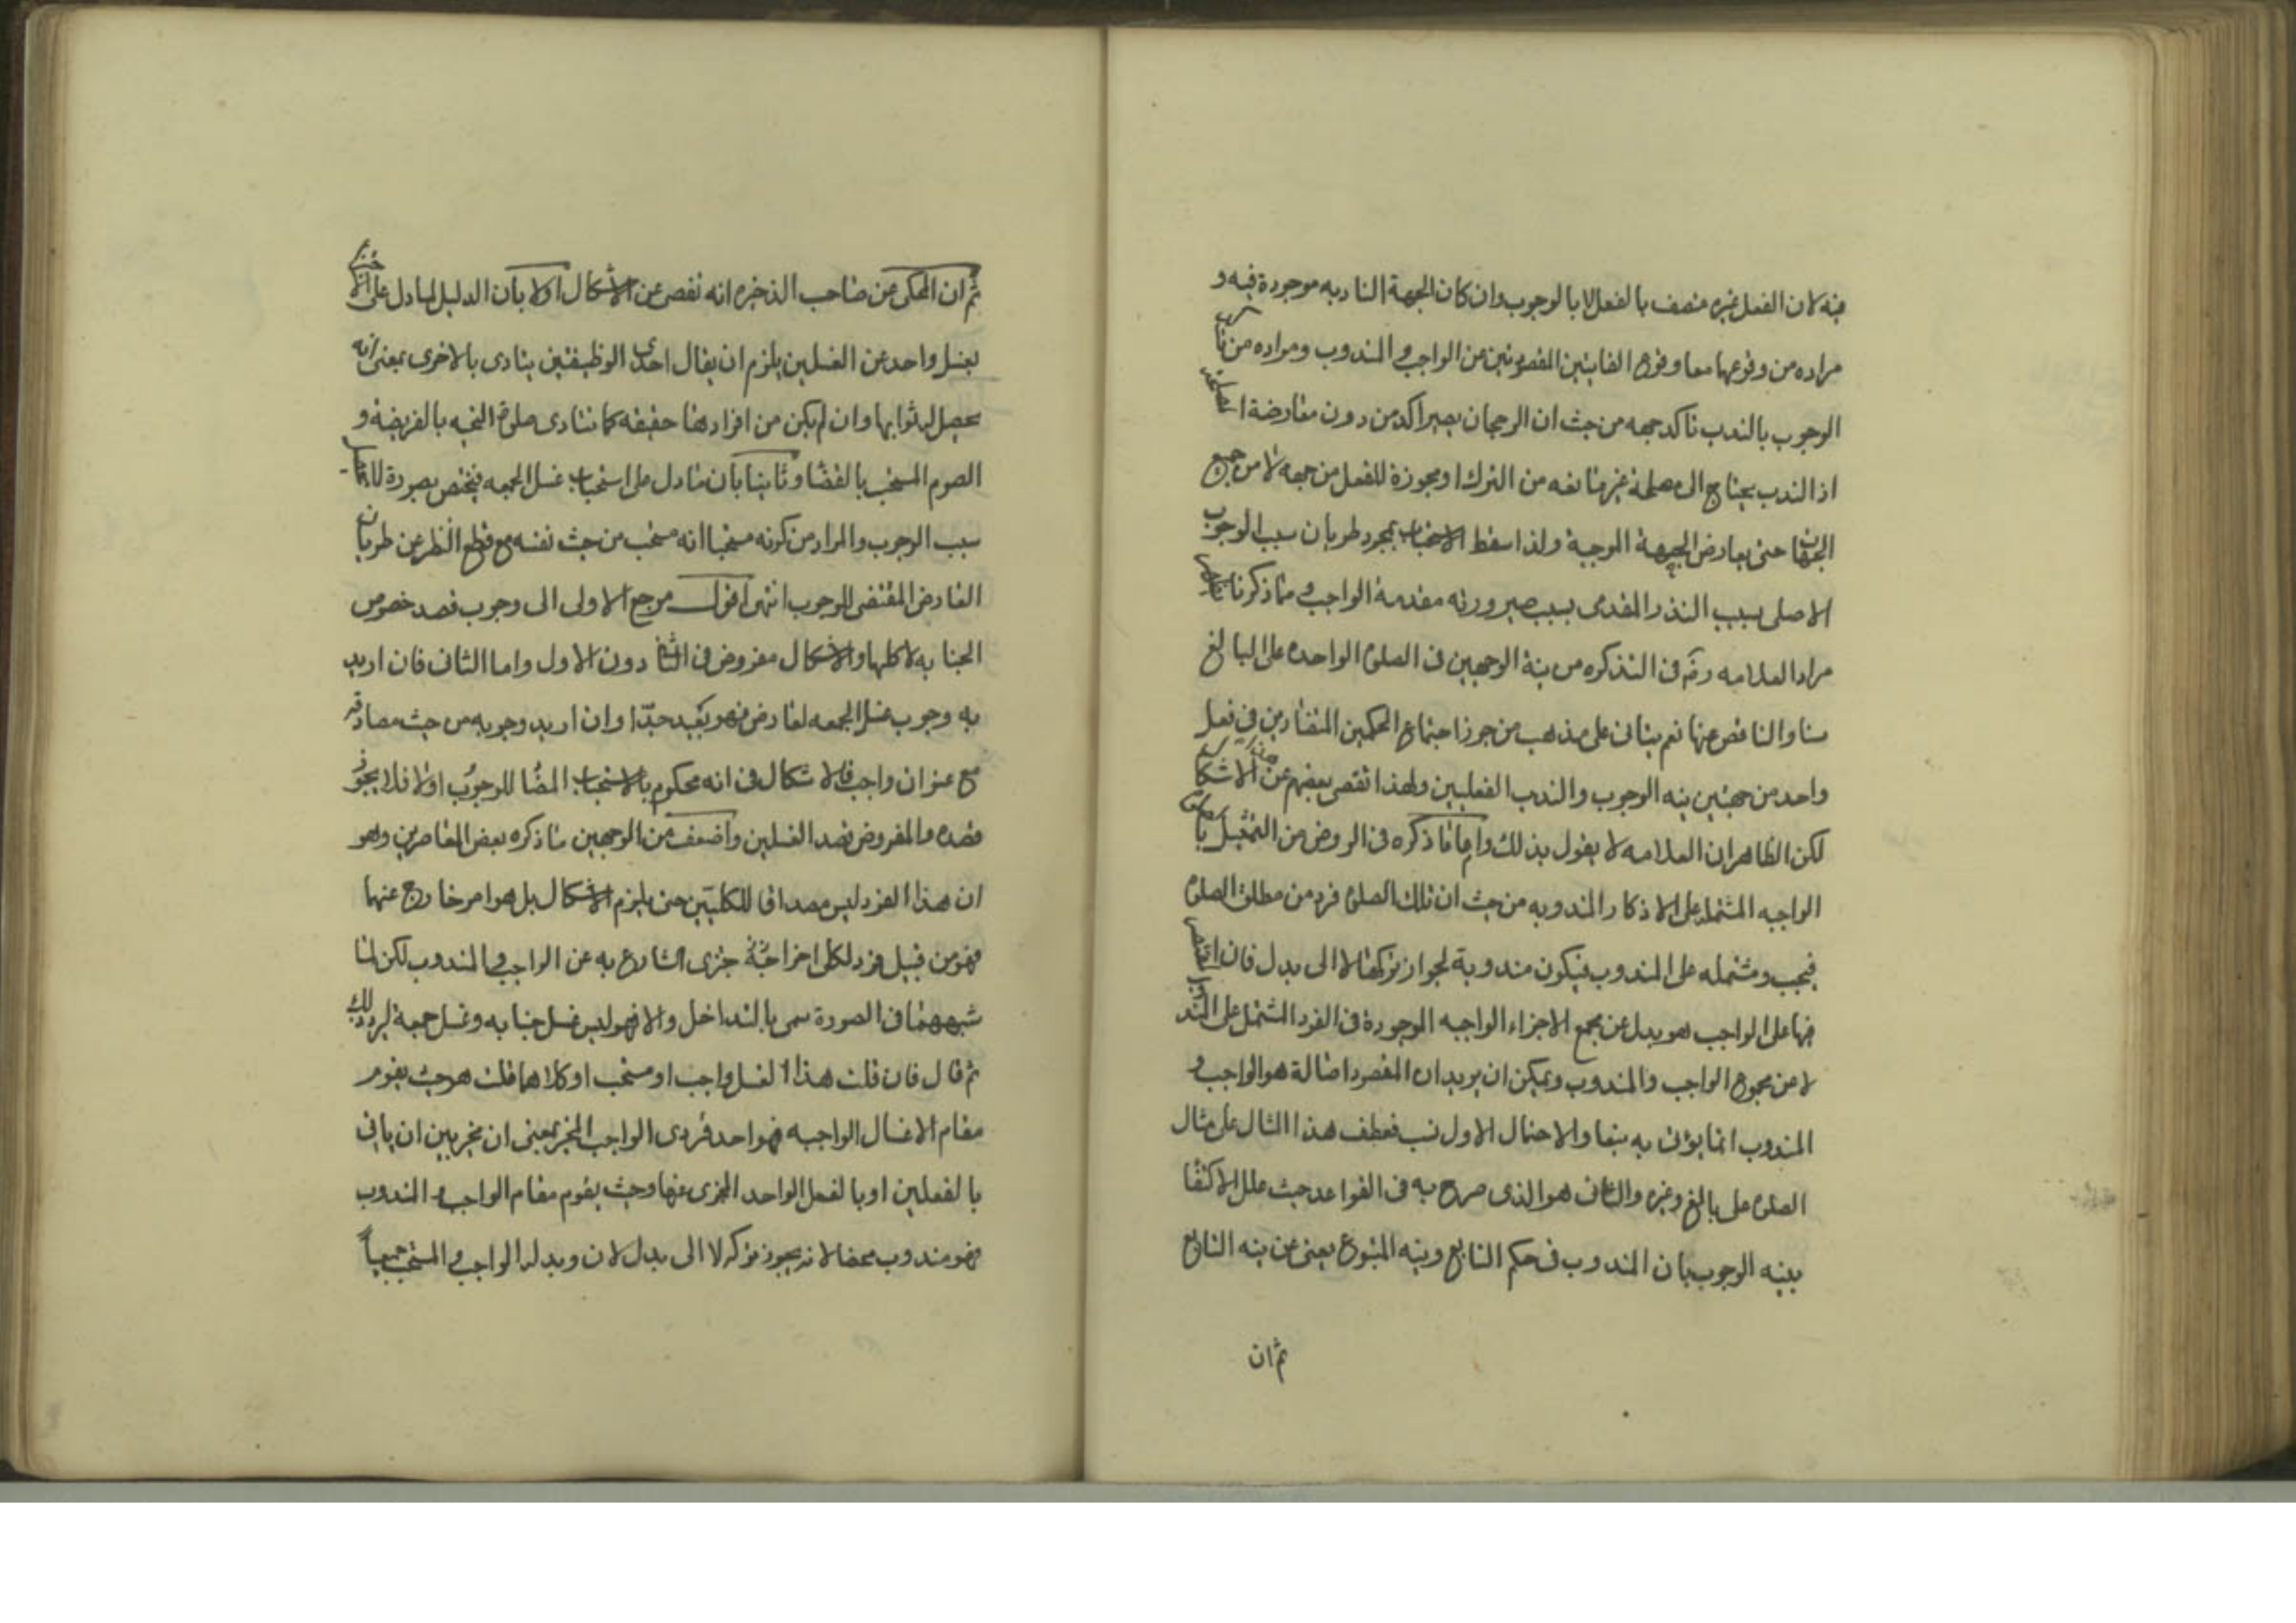 فيه لان الفعل غيره متصف بالفعل الا بالوجوب وان كان الجهة النادبه موجودة فيه و
مراده من وقوعهما معا وقوع الغايتين المقصودتين من الواجب و المندوب ومراده من تاكد
الوجوب بالندب تاكد جهه من حيث ان الرجحان يصير اكد من دون معارضة المصلحتين
اذ الندب يحتاج الى مصلحة غير مانعه من الترك او مجوزة للفعل من جهه لا من جميع
الجهات حتى يعارض الجهة الموجبة ولذا سقط الاستحباب بمجرد طريان سبب الوجوب
الاصلى بسبب النذر المقدمى بسبب صيرورته مقدمة الواجب و مما ذكرنا يظهر
مراد العلامه ره فى التذكره من نية الوجهين فى الصلوة الواحده على البالغ
سنا والناقص عنها نعم يتاتى على مذهب من جوز اجتماع الحكمين المتضادين فى فعل
واحد من جهتين نيه الوجوب والندب الفعليين ولهذا تفصى بعضهم عن الاشكال
لكن الظاهر ان العلامه لا يقول بذلك واما ما ذكره فى الروض من التمثيل بالصلوة
الواجبه المشتمله على الاذكار المندوبه من حيث ان تلك الصلوة فرد من مطلق الصلوة
فيجب ومشتمله على المندوب فيكون مندوبة لجواز تركها لا الى بدل فان اقتصر
فيها على الواجب هو بدل عن مجمع الاجزاء الواجبه الموجودة فى الفرد المشتمل على الندب
لا من مجموع الواجب والمندوب ويمكن ان يريد ان المقصود اصالة هو الواجب و
المندوب انما يؤتى به تبعا والاحتمال الاول نسب فعطف هذا المثال على مثال
الصلوة على بالغ وغيره والثانى هو الذى صرح به فى القواعد حيث علل الاكتفا
بنية الوجوب بان المندوب فى حكم التابع ونية المتبوع يغنى عن نيه التابع
ثم ان
ثم ان المحكى عن صاحب الذخيره انه تفصى عن الاشكال اولا بان الدليل لما دل على الاجتزاء
بغسل واحد عن الغسلين يلزم ان يقال احدى الوظيفتين يتادى بالاخرى بمعنى انه
يحصل له ثوابها وان لم يكن من افرادها حقيقه كما تتادى صلوة التحيه بالفريضة و
الصوم المستحب بالقضا وثانيا بان مادل على استحباب غسل الجمعه فيختص بصورة
سبب الوجوب والمراد من كونه مستحبا انه مستحب من حيث نفسه مع قطع النظر عن طريان
العارض المقتضى للوجوب انتهى اقول مرجع الاولى الى وجوب قصد خصوص
الجنابه لا كلها والاشكال مفروض فى الثانى دون الاول واما الثانى فان اريد
به وجوب غسل الجمعه لعارض فهو بعيد جدّا وان اريد وجوبه من حيث مصادقه
مع عنوان واجب فلا اشكال فى انه محكوم بالاستحباب المضا للوجوب اولا فلا يجوز
قصده والمفروض قصد الغسلين واضعف من الوجهين ما ذكره بعض المعاصرين وهو
ان هذا الفرد ليس مصداقا للكليتين حتى يلزم الاشكال بل هو امر خارج عنهما
فهو من قبيل فرد لكلى اخر اجتزى الشارع به عن الواجب و المندوب لكن لما
شبههما فى الصورة سمى بالتداخل والا فهو ليس غسل جنابه وغسل جمعة
ثم قال فان قلت هذا الغسل واجب او مستحب او كلاهما قلت هو حيث يقوم
مقام الاغسال الواجبه فهو احد فردى الواجب المخير بمعنى ان مخير بين ان ياتى
بالفعلين او بالفعل الواحد المجزى عنها وحيث يقوم مقام الواجب و المندوب
فهو مندوب محضا لانه يجوز تركه لا الى بدل لان وبدله الواجب و المستحب جميعاً